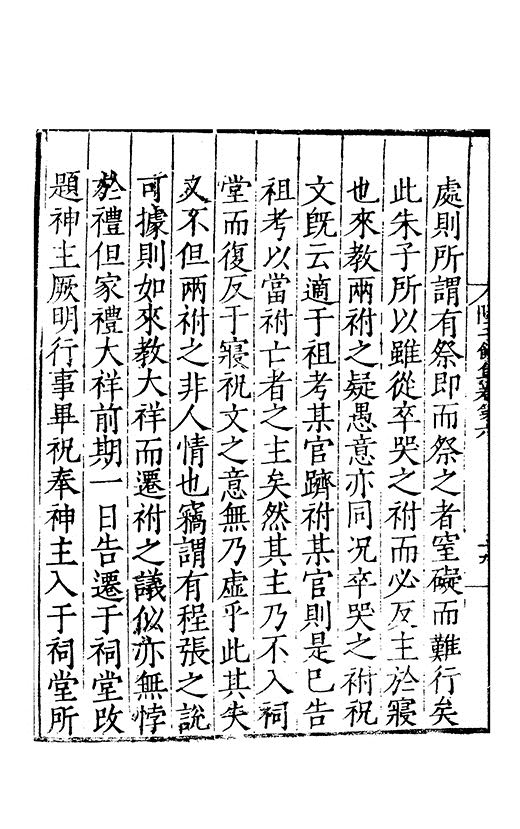 處則所謂有祭即而祭之者窒礙而難行矣
此朱子所以雖從卒哭之祔而必反主於寢
也來教兩祔之疑愚意亦同况卒哭之祔祝
文旣云適于祖考某官躋祔某官則是已告
祖考以當祔亡者之主矣然其主乃不入祠
堂而復反于寢祝文之意無乃虛乎此其失
又不但兩祔之非人情也竊謂有程張之說
可據則如來教大祥而遷祔之議似亦無悖
於禮但家禮大祥前期一日告遷于祠堂改
題神主厥明行事畢祝奉神主入于祠堂所